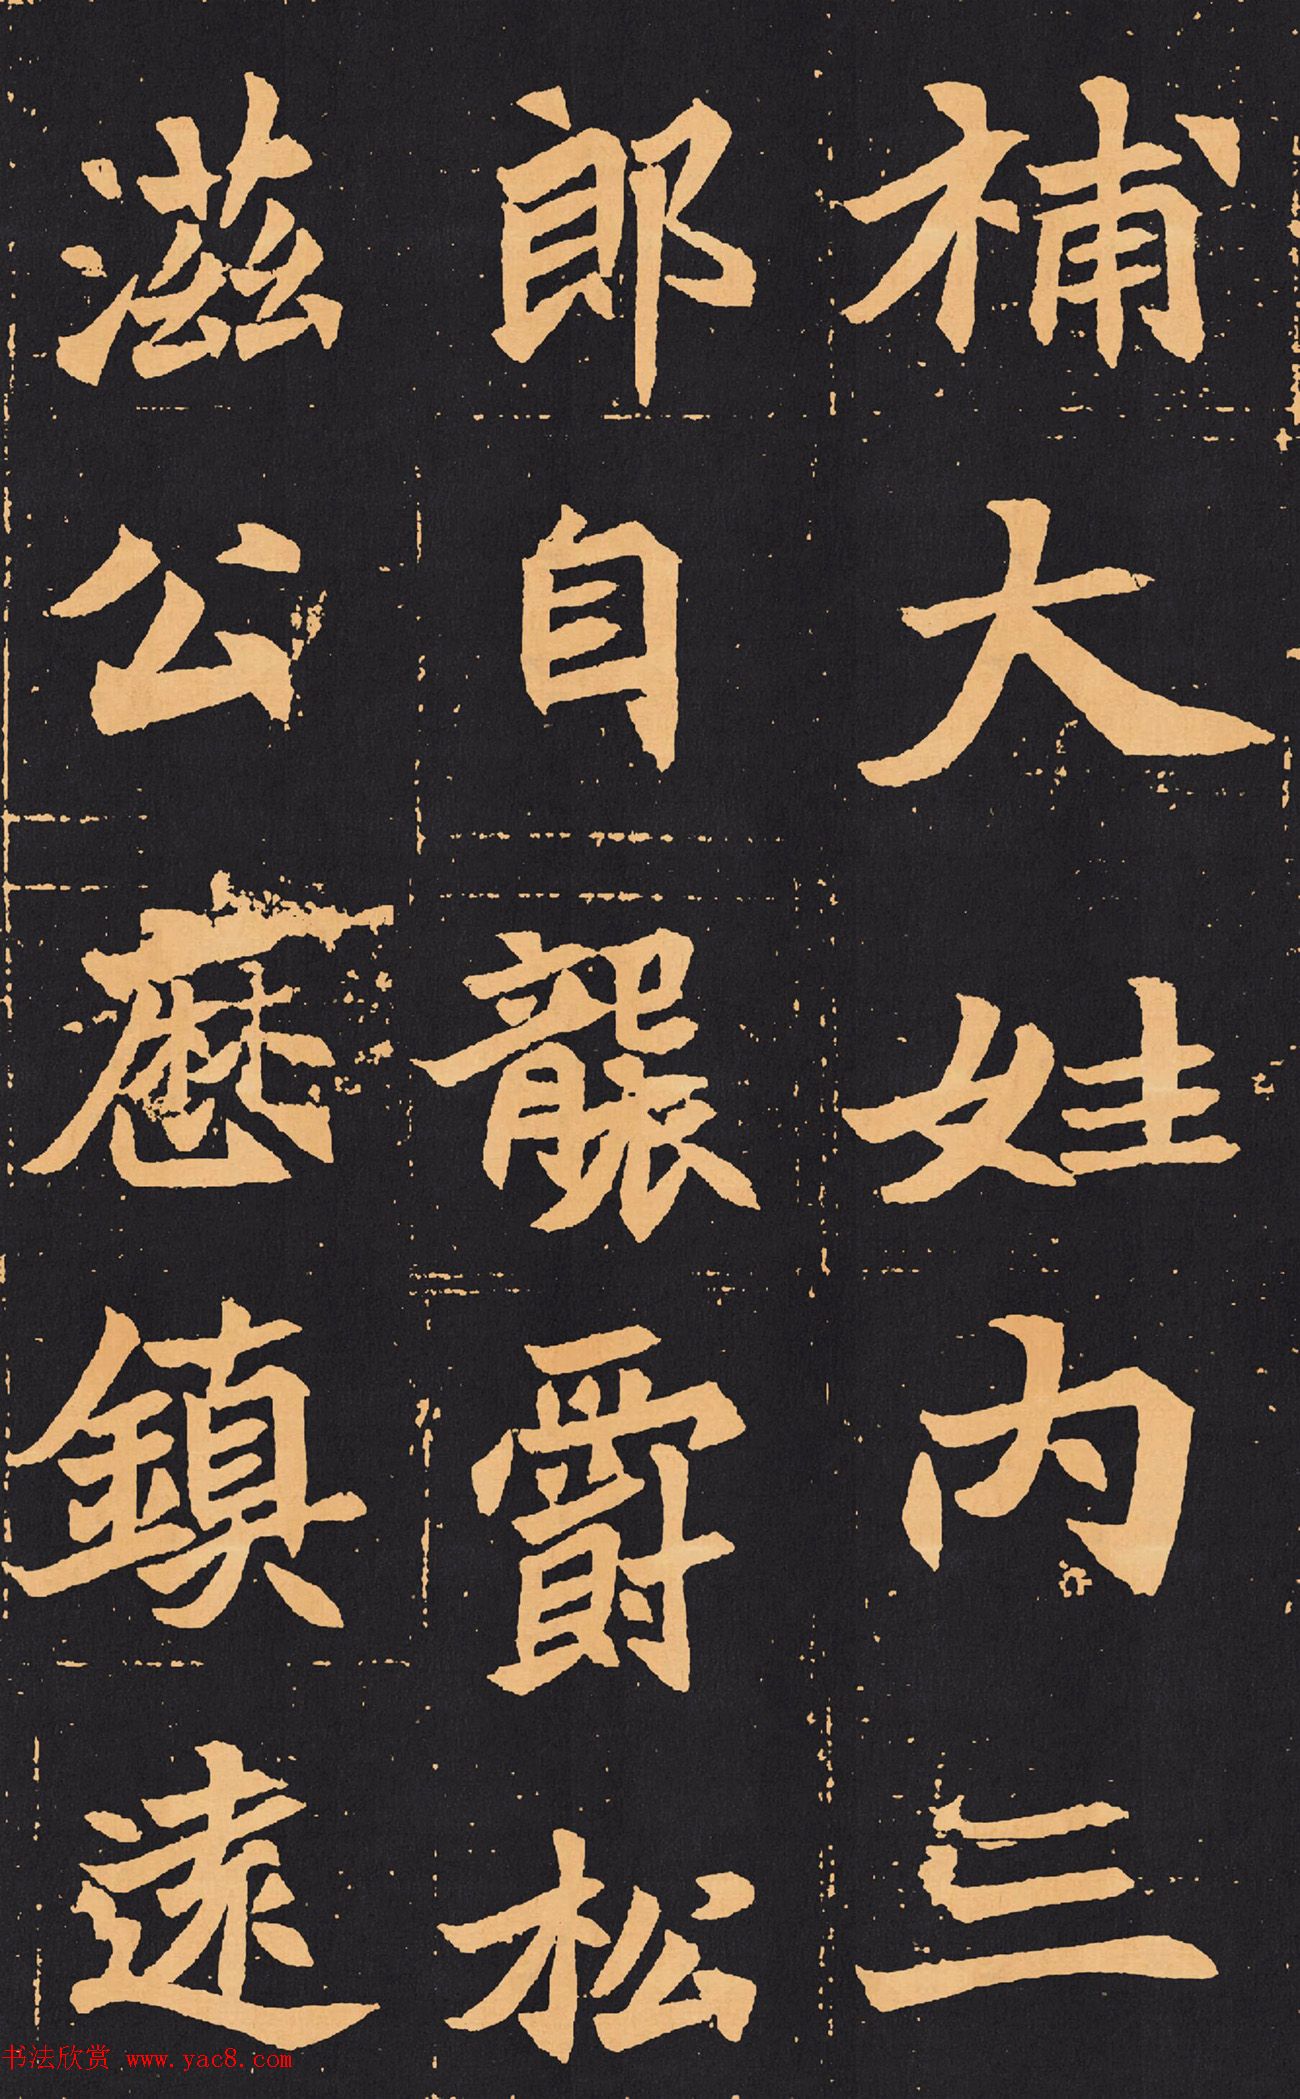 補大姓内三
郎自襲爵松
滋公歷鎮遠
书法欣赏 www.yac8.com